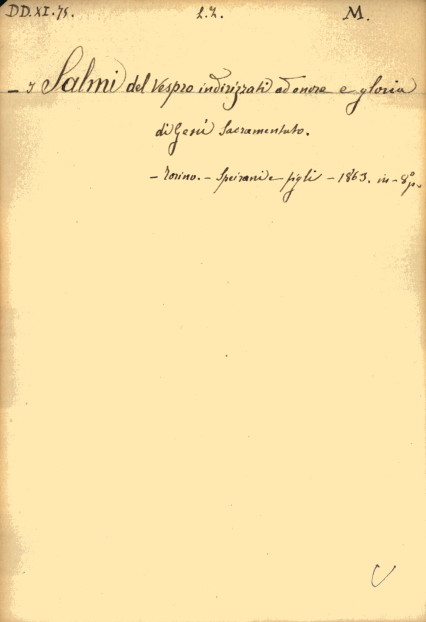 DD.XI.75. L.2. M.
_ I Salmi del Vespro indirizzati ad onore e gloria
di Gesù Sacramentato.
- Torino. - Speirani e figli - 1863. in-8º p.
V